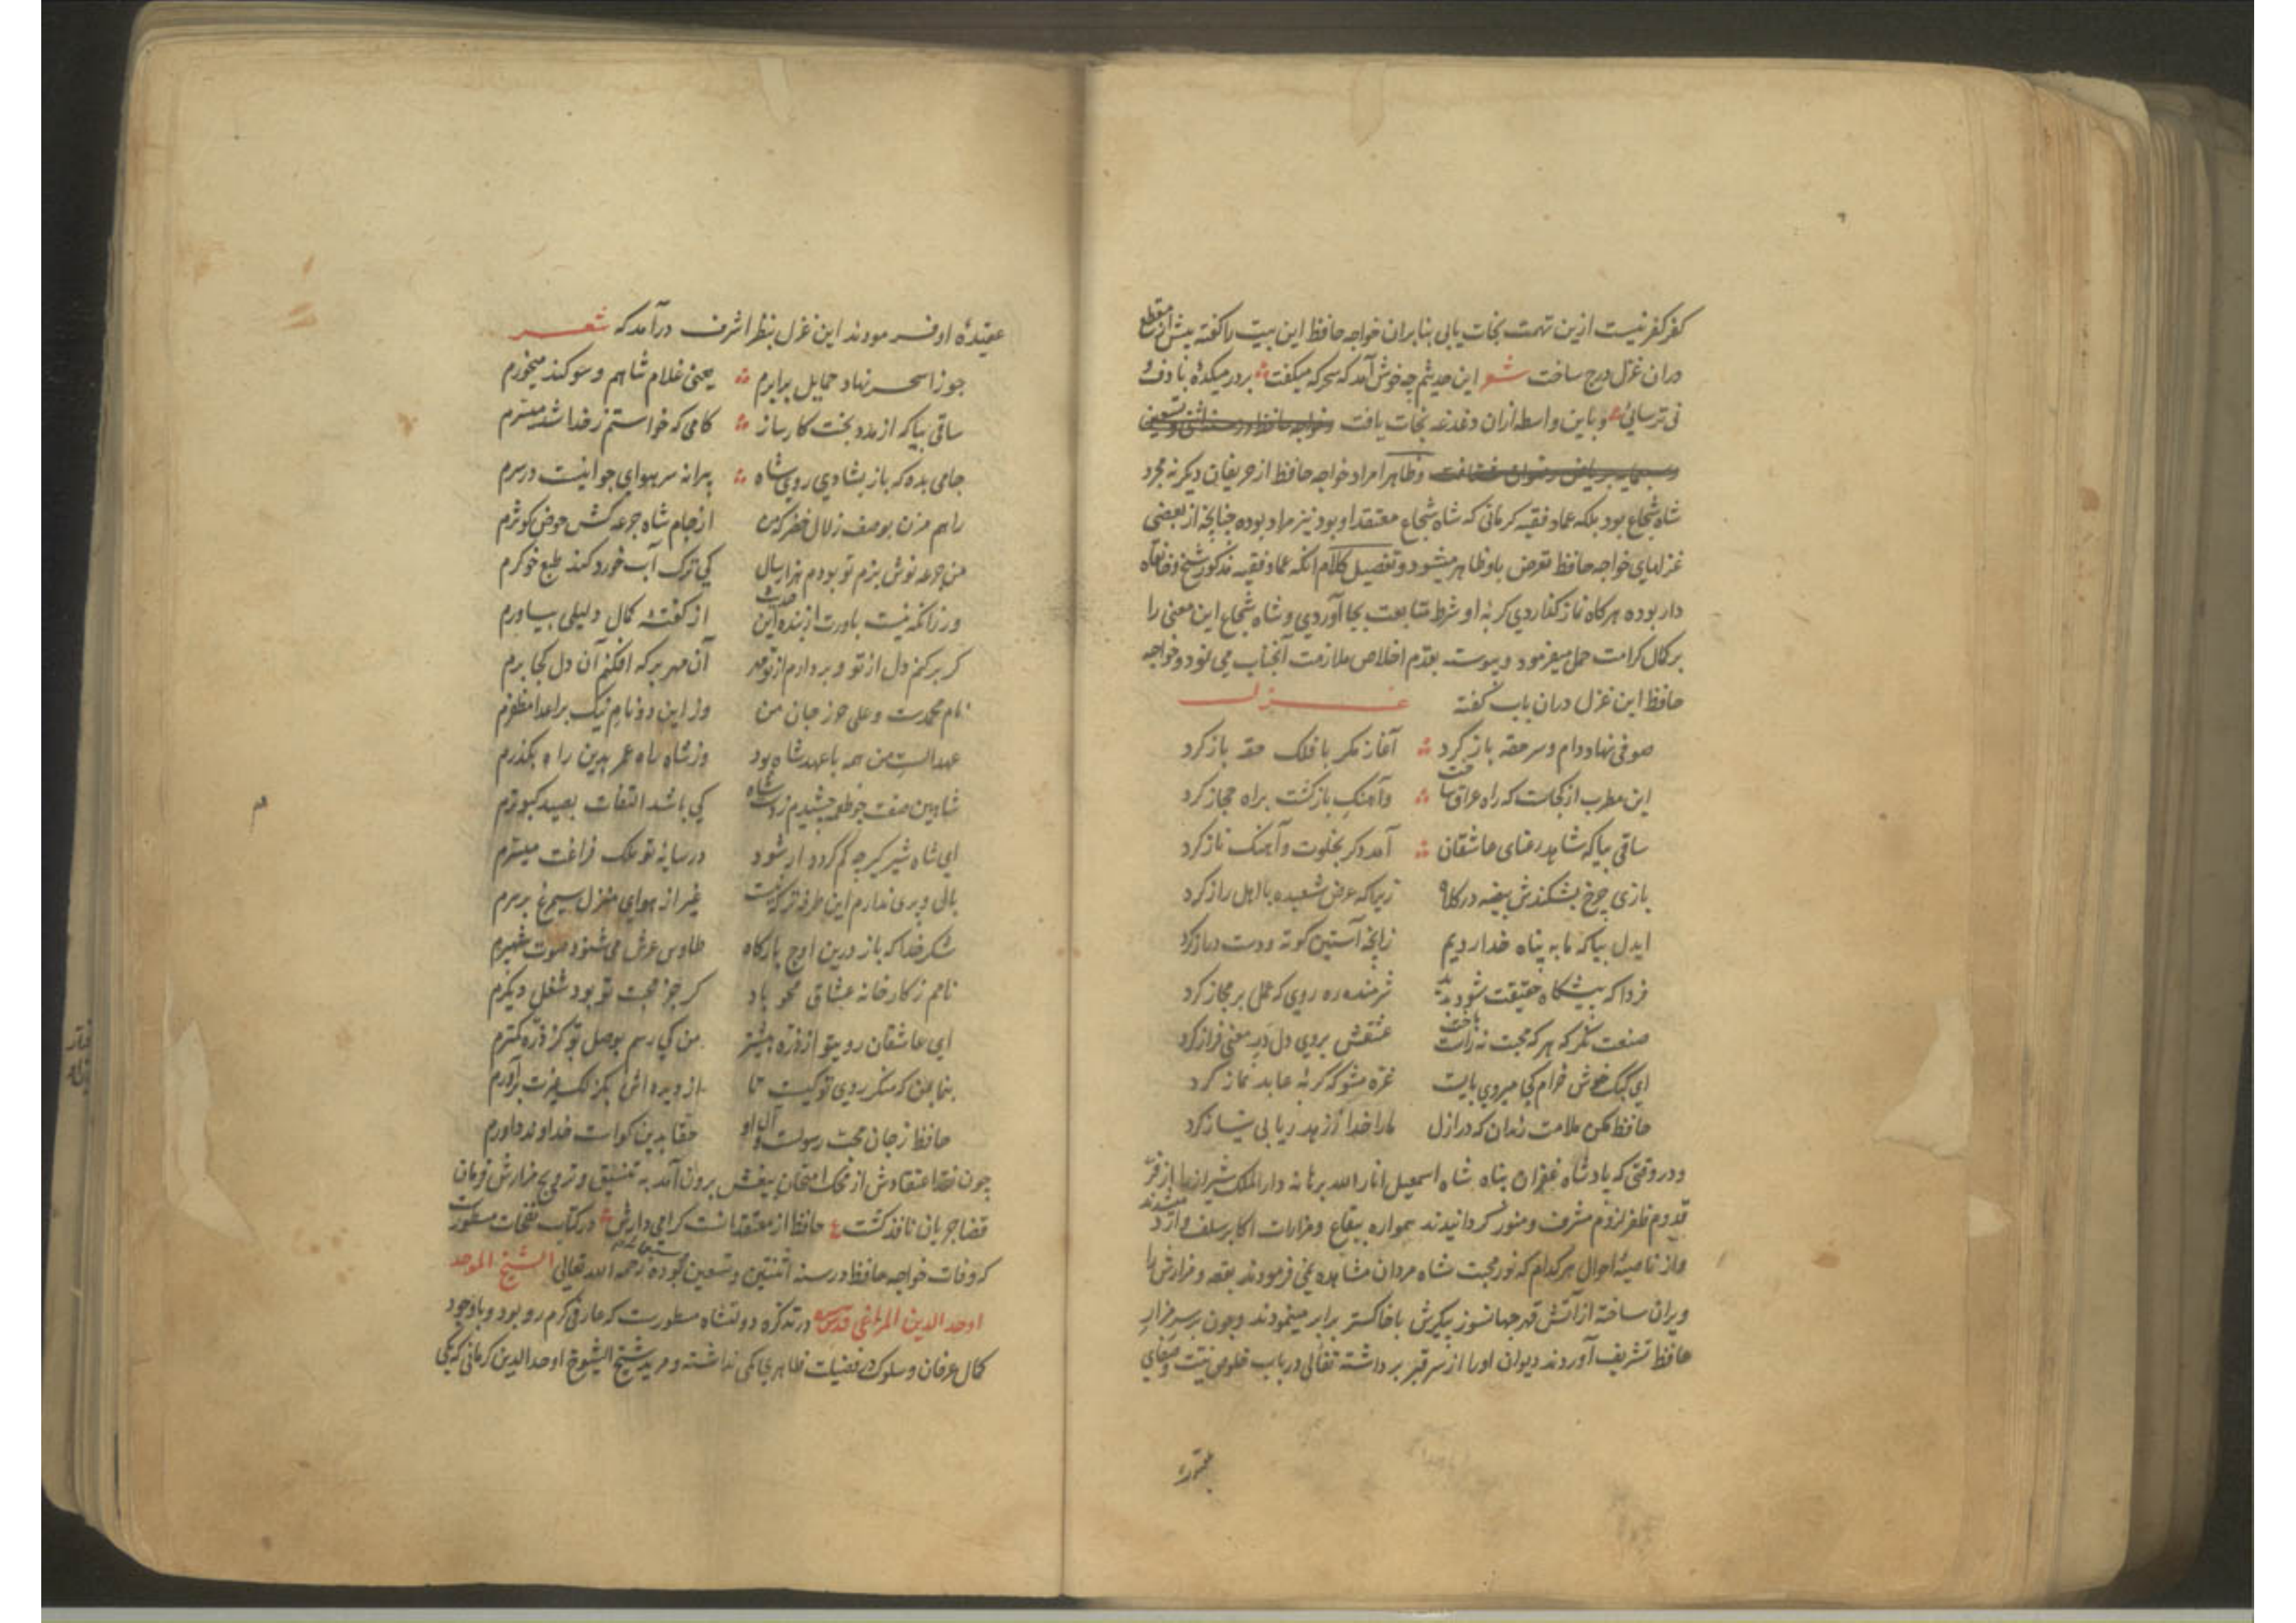 کفر کفر نیست ازین تهمت نجات یابی بنابران خواجه حافظ این بیت را گفته پیش از مقطع
دران غزل درج ساخت شعر این حدیثم چه خوش آمد که سحرکه میکفت بر در میکدهٔ با دف و
نی ترسائی و باین واسطه ازان دغدغه نجات یافت
وظاهرا مراد خواجه حافظ از حریفان دیکر نه مجرد
شاه شجاع بود بلکه عماد فقیه کرمانی که شاه شجاع معتقد او بود نیز مراد بوده چنانچه از بعضی
غزلهای خواجه حافظ تعرض باو ظاهر میشود و تفصیل کلام انکه عماد فقیه مذکور شیخ و خانقاه
دار بوده هرکاه نماز کذاردی کربهٔ او شرط متابعت بجا آوردی و شاه شجاع این معنی را
بر کمال کرامت حمل میفرمود و پیوسته بقدم اخلاص ملازمت آنجناب می نمود و خواجه
حافظ این غزل دران باب گفته غزل
صوفی نهاد دام و سر حقه باز کرد آغاز مکر با فلک حقه باز کرد
این مطرب از کجاست که راه عراق ساخت وآهنک باز کشت براه حجاز کرد
ساقی بیا که شاهد رعنای عاشقان آمد دکر بخلوت و آهنک ناز کرد
بازی چرخ بشکندش بیضه در کلاه زیرا که عرض شعبده با اهل راز کرد
ایدل بیا که ما به پناه خدا رویم زانچه آستین کوته و دست دراز کرد
فردا که پیشکاه حقیقت شود پدید شرمنده ره روی که عمل بر مجاز کرد
صنعت مکر که هر که محبت نه راست باخت عشقش بروی دل در معنی فراز کرد
ای کبک خوش خرام کجا میروی بایست غره مشو که کربهٔ عابد نماز کرد
حافظ مکن ملامت رندان که در ازل مارا خدا ز زهد ریا بی نیاز کرد
و در وقتی که پادشاه غفران پناه شاه اسمعیل انار الله برهانه دار الملک شیراز را از فر
قدوم ظفر لزوم مشرف و منور کردانیدند همواره ببقاع و مزارات اکابر سلف می شدند
و از ناصیهٔ احوال هر کدام که نور محبت شاه مردان مشاهده نمی فرمودند بقعه و مزارش را
ویران ساخته از آتش قهر جهانسوز پیکرش با خاکستر برابر مینمودند و چون بر سر مزار
حافظ تشریف آوردند دیوان اورا از سر قبر برداشته تفألی در باب خلوص نیت و صفای
عقیدهٔ او فرمودند این غزل بنظر اشرف درآمد که شعر
جوزا سحر نهاد حمایل برابرم یعنی غلام شاهم و سوکند میخورم
ساقی بیا که از مدد بخت کارساز کامی که خواستم ز خدا شد میسرم
جامی بده که باز بشادی روی شاه پیرانه سر هوای جوانیست در سرم
راهم مزن بوصف زلال خضر که من از جام شاه جرعه کش حوض کوثرم
من جرعه نوش بزم تو بودم هزار سال کی ترک آب خورد کند طبع خوکرم
ور زانکه نیست باورت از بنده این حدیث از کفتهٔ کمال دلیلی بیاورم
کر برکنم دل از تو و بردارم از تو مهر آن مهر بر که افکنم آن دل کجا برم
نام محمدست و علی حرز جان من وز این دو نام نیک بر اعدا مظفرم
عهد الست من همه با عهد شاه بود وز شاه راه عمر بدین راه بکذرم
شاهین صفت چو طعمه چشیدم ز دست شاه کی باشد التفات بصید کبوترم
ای شاه شیر کیر چه کم کردد ار شود در سایهٔ تو ملک فراغت میسرم
بال و پری ندارم این طرفه تر که نیست غیر از هوای منزل سیمرغ بر سرم
شکر خدا که باز درین اوج بارکاه طاوس عرش می شنود صوت شهپرم
نامم ز کارخانه عشاق محو باد کر جز محبت تو بود شغل دیکرم
ای عاشقان روی تو از ذره بیشتر من کی رسم بوصل تو کز ذره کمترم
بنما بمن که منکر روی تو کیست تا از دیده اش بکزلک غیرت برآورم
حافظ ز جان محب رسولست و آل او حقا بدین کواست خداوند داورم
چون نقد اعتقادش از محک امتحان بیغش برون آمد به تنسیق و ترویج مزارش فرمان
قضا جریان نافذ کشت ع حافظ از معتقدانست کرامی دارش در کتاب نفحات مسطورست
که وفات خواجه حافظ در سنه اثنتین و تسعین و سبعمایه بوده رحمه الله تعالی الشیخ الموحد
اوحد الدین المراغی قدس سره در تذکره دولتشاه مسطورست که عارفی کرم رو بود و با وجود
کمال عرفان و سلوک در فضیلت ظاهری کمی نداشته و مرید شیخ الشیوخ اوحد الدین کرمانی که یکی